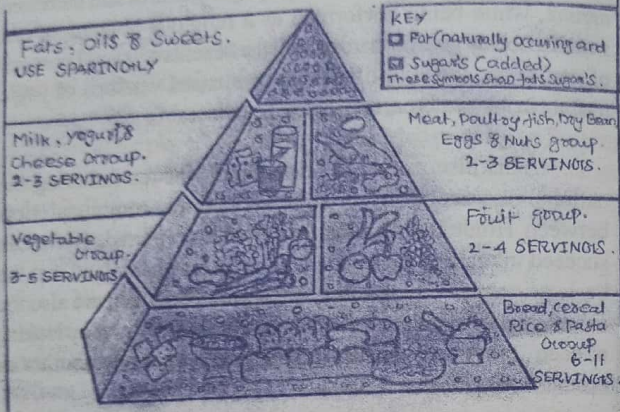 Fats, Oils & Sweets.
USE SPARINGLY
KEY
Fat (naturally occuring and
Sugar's (added)
These symbols shad fats sugar's.
Milk, yogurt &
Cheese Group.
2-3 SERVINGS.
Meat, Poultry, fish, Dry Bean,
Eggs & Nuts group.
2-3 SERVINGS.
Vegetable
Group.
3-5 SERVINGS
Fruit group.
2-4 SERVINGS.
Bread, cereal
Rice & Pasta
Group
6-11
SERVINGS.